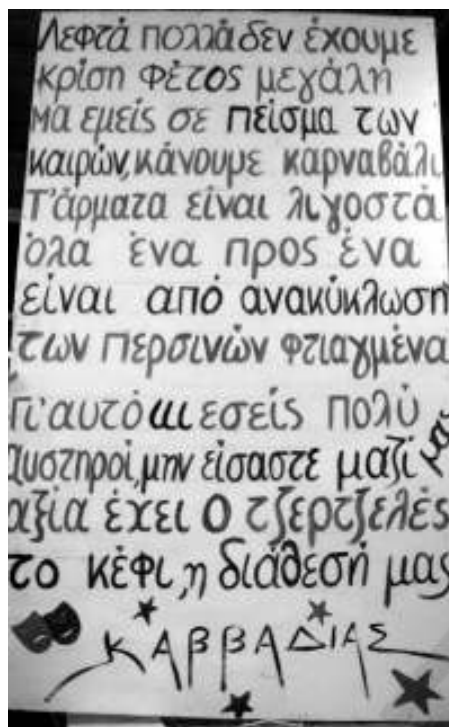 Λεφτά πολλά δεν έχουμε
κρίση φέτος μεγάλη
μα εμείς σε πείσμα των
καιρών, κάνουμε καρναβάλι
Τ'άρματα είναι λιγοστά
όλα ένα προς ένα
είναι από ανακύκλωση
των περσινών φτιαγμένα
Γι'αυτό κι εσείς πολύ
αυστηροί, μην είσαστε μαζί μας
αξία έχει ο τζερτζελές
το κέφι, η διάθεσή μας
ΚΑΒΒΑΔΙΑΣ